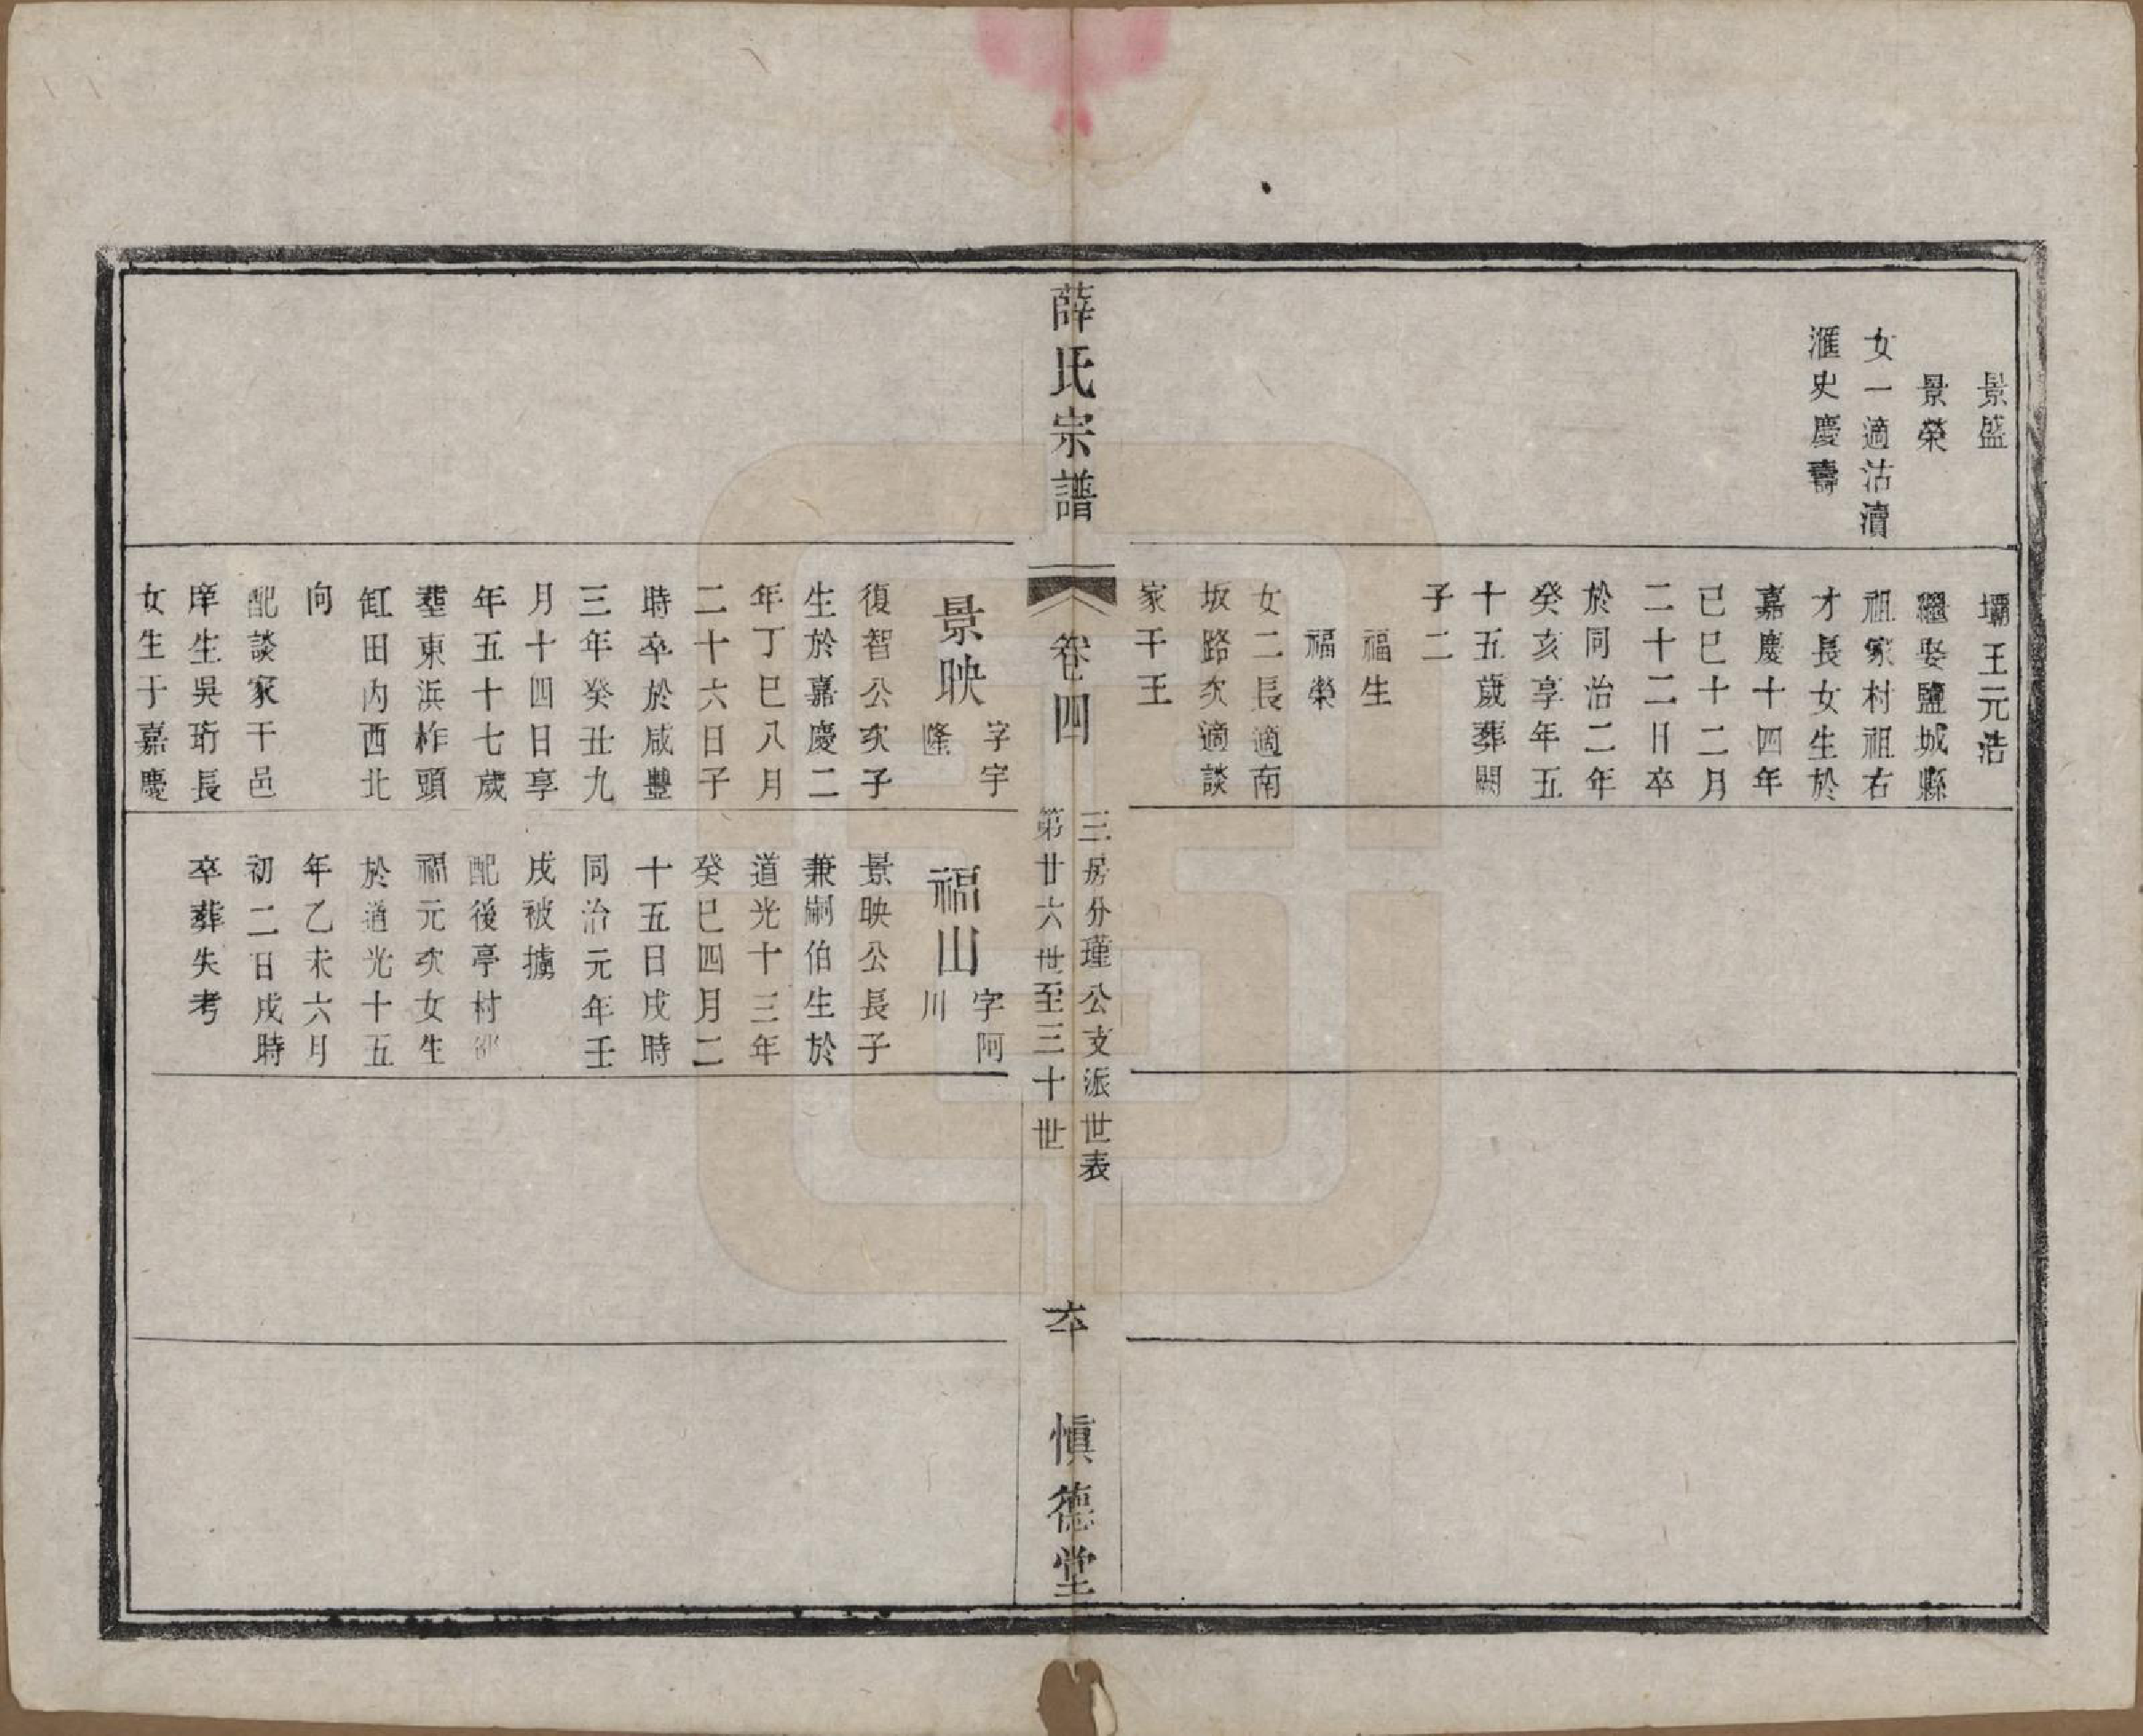 景盛
景榮
女一適沽瀆
滙史慶壽
壩王元浩
繼娶鹽城縣
祖家村祖右
才長女生於
嘉慶十四年
己巳十二月
二十二日卒
於同治二年
癸亥享年五
十五歲葬闕
子二
福生
福榮
女二長適南
坂路次適談
家干王
薛氏宗譜
卷四
三房分瑾公支派世表
第廿六世至三十世
慎德堂
景映
字宇
隆
復智公次子
生於嘉慶二
年丁巳八月
二十六日子
時卒於咸豐
三年癸丑九
月十四日享
年五十七歲
塟東浜柞頭
缸田内西北
向
配談家干邑
庠生吳珩長
女生于嘉慶
福山
字阿
川
景映公長子
兼嗣伯生於
道光十三年
癸巳四月二
十五日戌時
同治元年壬
戌被擄
配後亭村
福元次女生
於道光十五
年乙未六月
初二日戌時
卒葬失考